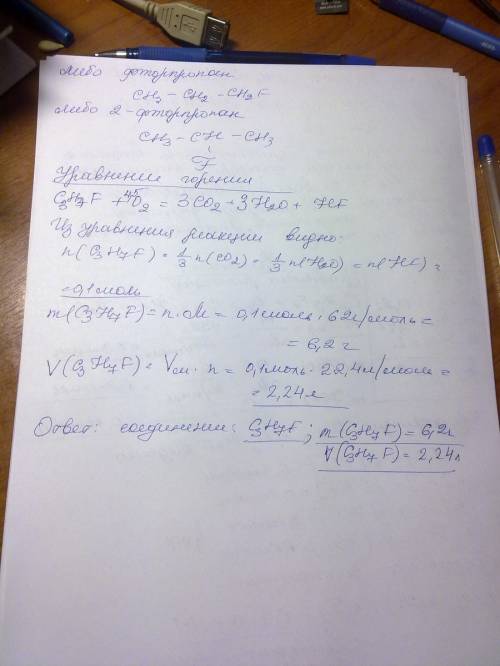 либо фторпропан
CH3 – CH2 – CH2F
либо 2-фторпропан
CH3 – CH – CH3
F
Уравнение горения
C3H7F + 4,5O2 = 3CO2 + 3H2O + HF
Из уравнения реакции видно:
n(C3H7F) = 1/3 n(CO2) = 1/3 n(H2O) = n(HF) =
= 0,1 моль
m(C3H7F) = n·M = 0,1 моль · 62 г/моль =
= 6,2 г
V(C3H7F) = Vм · n = 0,1 моль · 22,4 л/моль =
= 2,24 л
Ответ: соединение: C3H7F; m(C3H7F) = 6,2 г
V(C3H7F) = 2,24 л